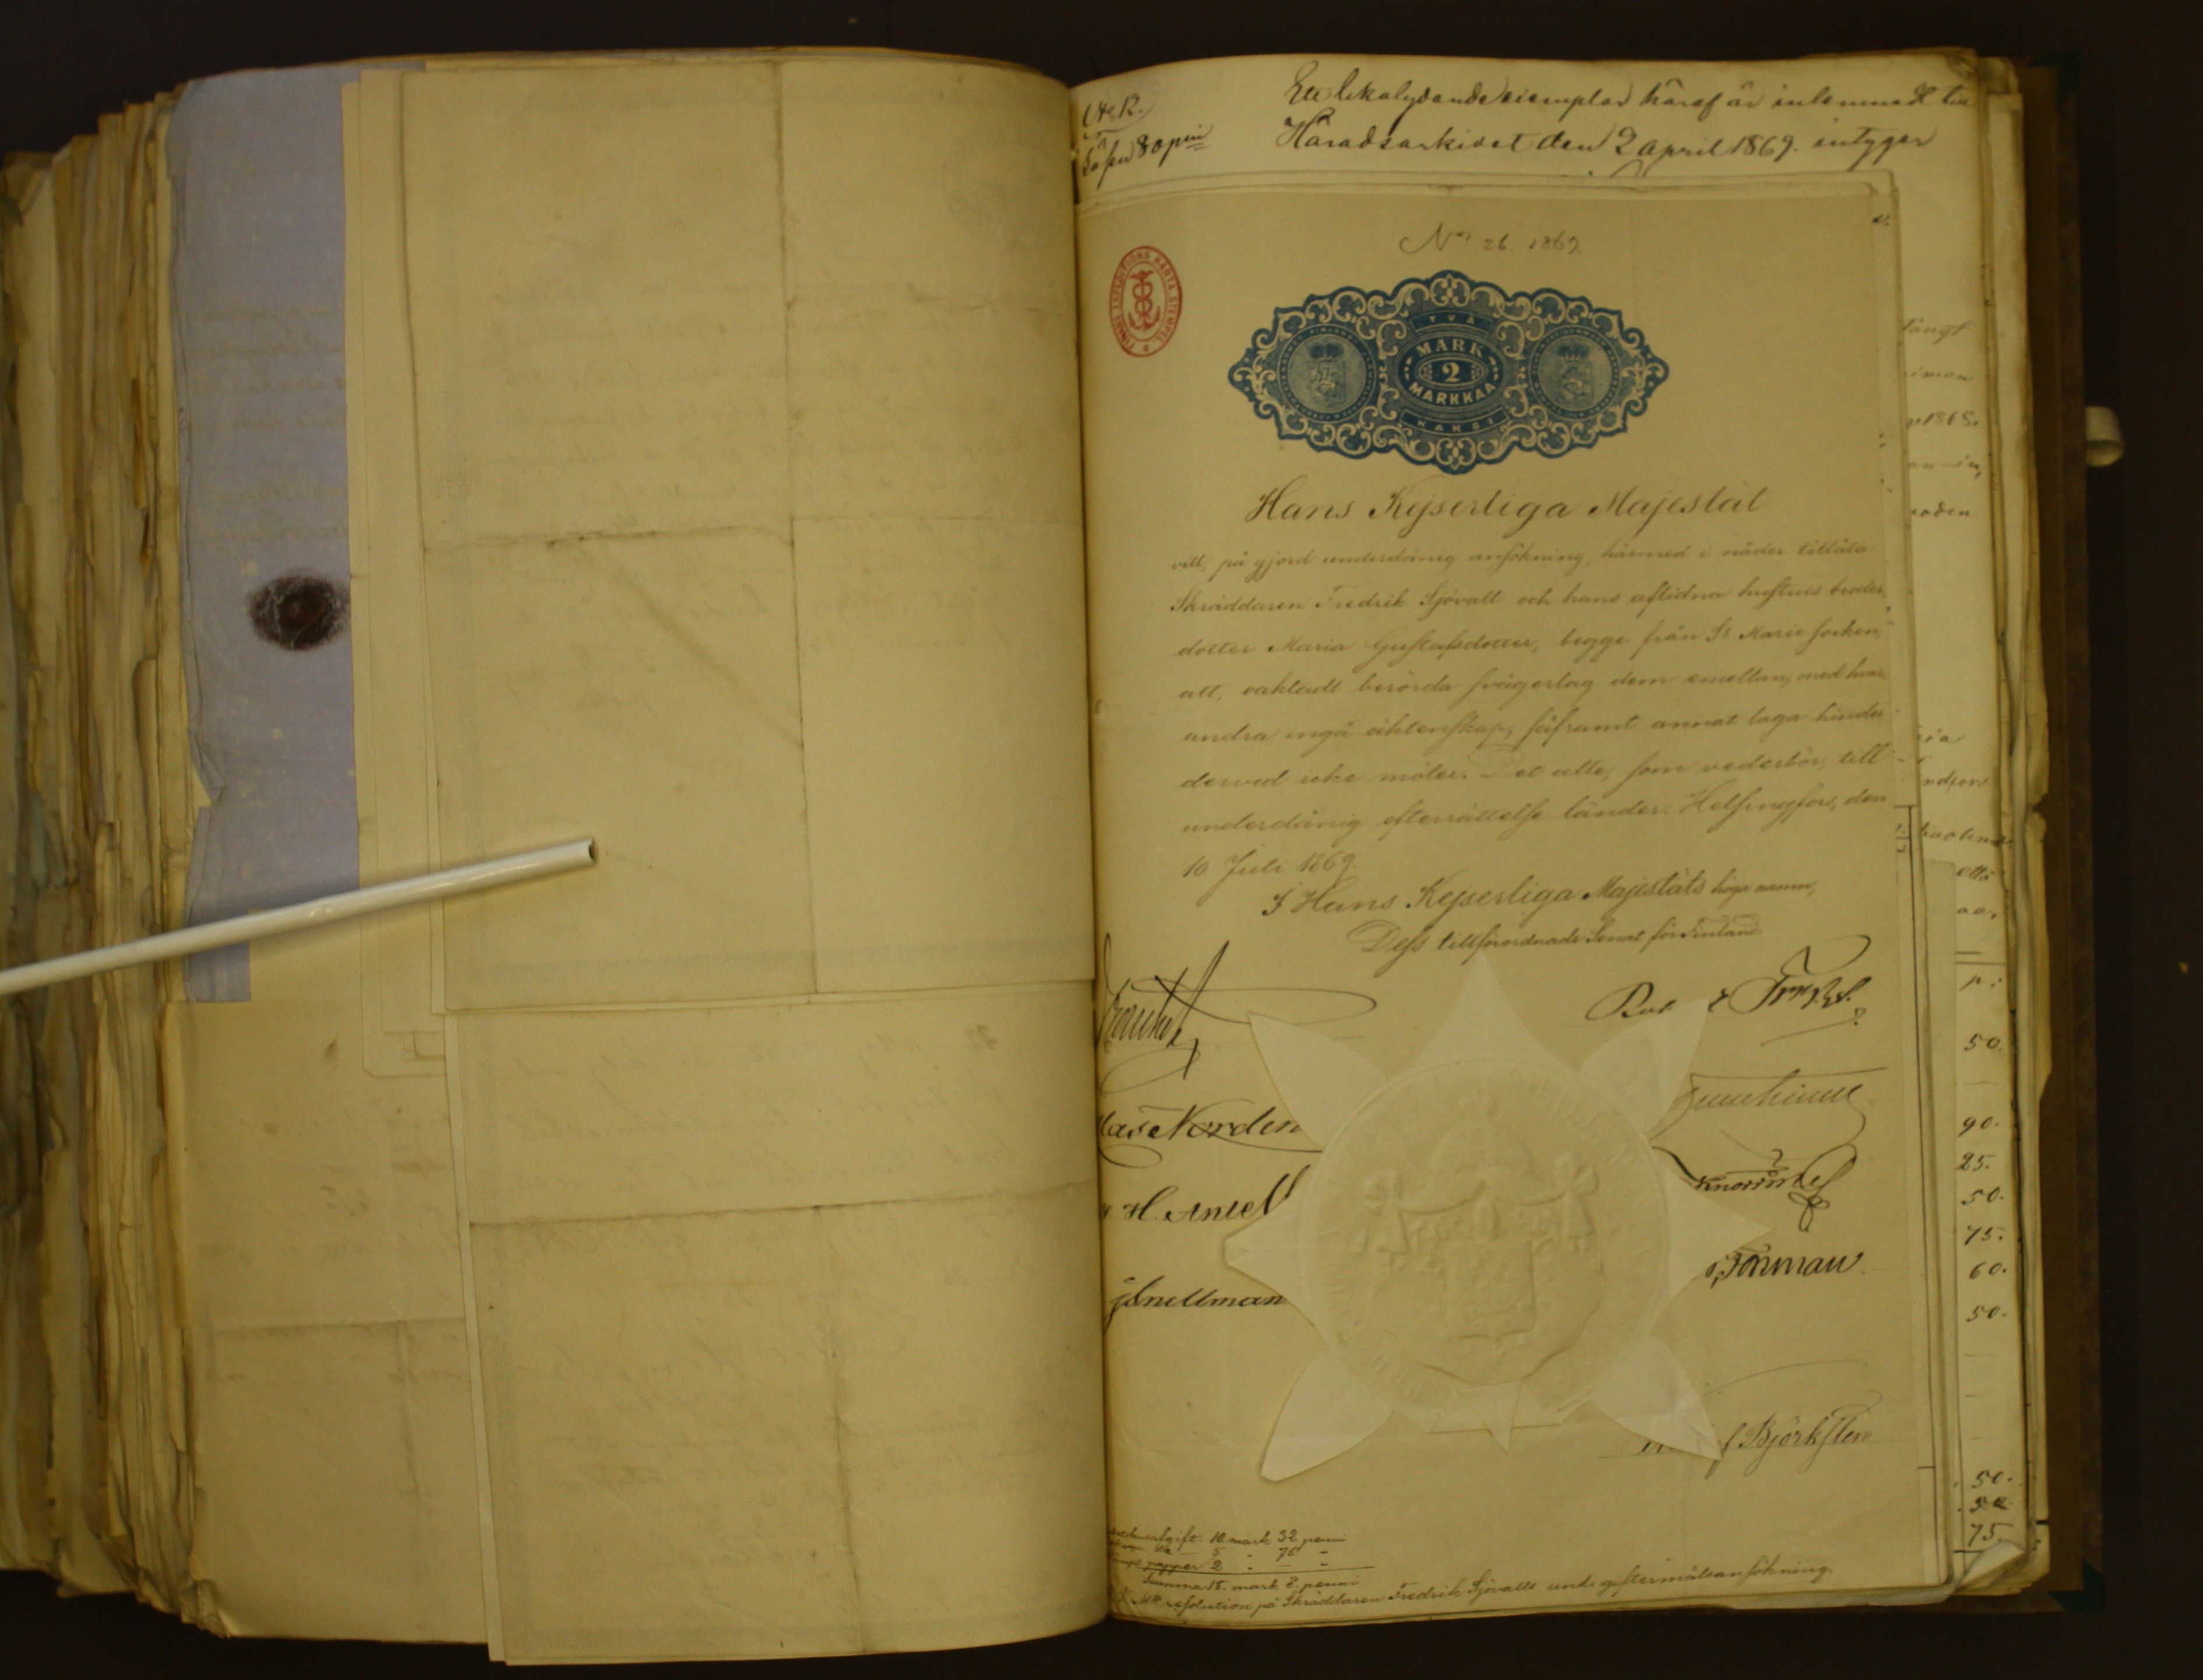 Ett likalydande exemplar häraf är inlemnadt till
Häradsarkivet den 2 April 1869. intygar
80 pni
No 26 1869.
FINANS EXPEDITIONS KARTA STEMPEL
TVÅ
MARK
2
MARKKAA
KAKSI
Hans Kejserliga Majestät
vill, på gjord underdånig ansökning, härmed i nåder tillåta
Skräddaren Fredrik Sjövall och hans aflidna hustrus broders
dotter Maria Gustafsdotter, begge från St Marie socken,
att, oaktadt berörda svågerlag dem emellan, med hvar
andra ingå äktenskap, såframt annat laga hinder
dervid icke möter. Det alle, som vederbör, till
underdånig efterrättelse länder. Helsingfors, den
10 Juli 1869.
I Hans Kejserliga Majestäts höga namn,
Dess tillförordnade Senat för Finland.
Norden
H. Antell
Snellman
Forsman
Björksten
10 mark 32 penni
5 - 76 -
papper 2 - - -
Summa 18. mark 8. penni
resolution på Skräddaren Fredrik Sjövalls und. giftermålsansökning.
långt
1868.
p:
50.
90.
25.
50.
75.
60.
50.
50.
50.
75.